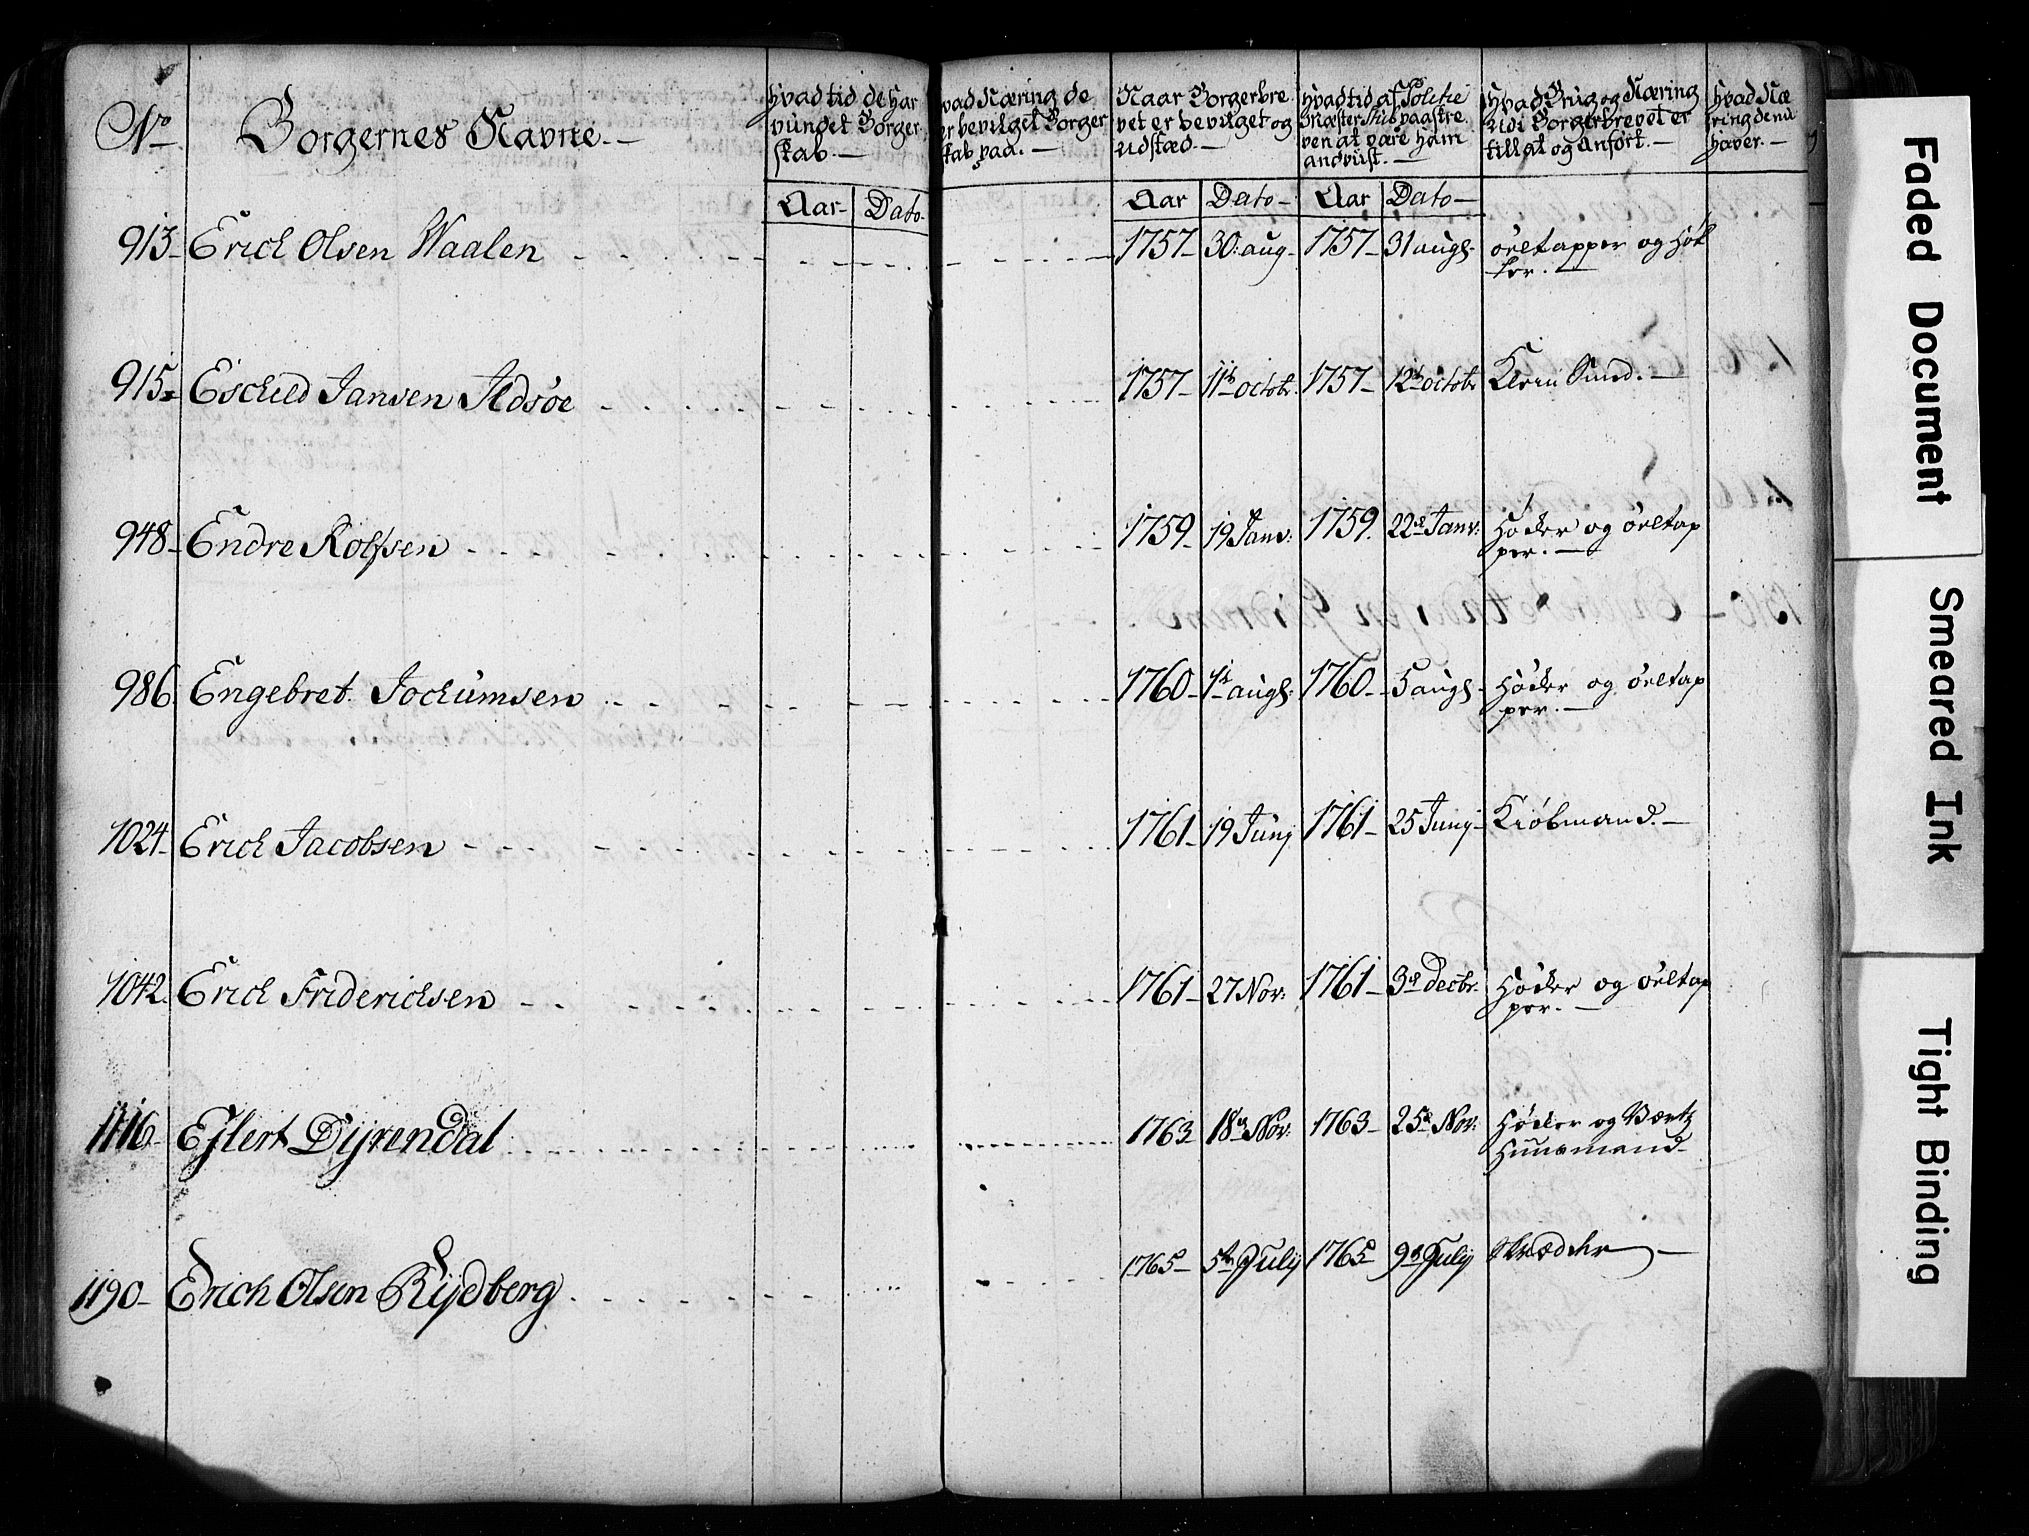 No
Borgernes Navne. —
Hvad tid de har
vundet Borger
skab. —
Aar – Dato.
vad Næring de
er bevilget Borger
skab paa. —
Naar Borgerbre
vet er bevilget og
udstæd. —
Aar Dato –
Hvad tid af Politie
Mæster paastre
ven at være ham
andviist. —
Aar Dato –
Hvad Brug og Næring
udi Borgerbrevet er
tillat og Anført. —
Hvad Næ
ring de nu
haver. —
913 – Erich Olsen Waalen 1757 – 30. aug – 1757 – 31 augs. øeltapper og Høk
ker. —
915 Eschild Jansen Ildsøe 1757 – 11t octobr. 1757 – 12t octobr Klein Smed. —
948 – Endre Rolfsen 1759 – 19 Janv: 1759. 22d Janv: Høcker og øeltap
per. —
986. Engebret Jochumsen 1760 – 1t augs: 1760 – 5 augs. Høcker og øeltap
per. —
1024 – Erich Jacobsen 1761 – 19 Junj 1761 – 25 Junj – Kiøbmand. —
1042. Erich Friderichsen 1761 – 27 Nov: 1761 – 3d decbr. Høcker og øeltap
per. —
1116 – Ejlert Dyrendal 1763 18d Nov: 1763 – 25d Nov: Høcker og Værtz
Huusmand –
1190 – Erich Olsen Rydberg 1765 – 5te July 1765 9d July Skrædder —
Faded Document
Smeared Ink
Tight Binding